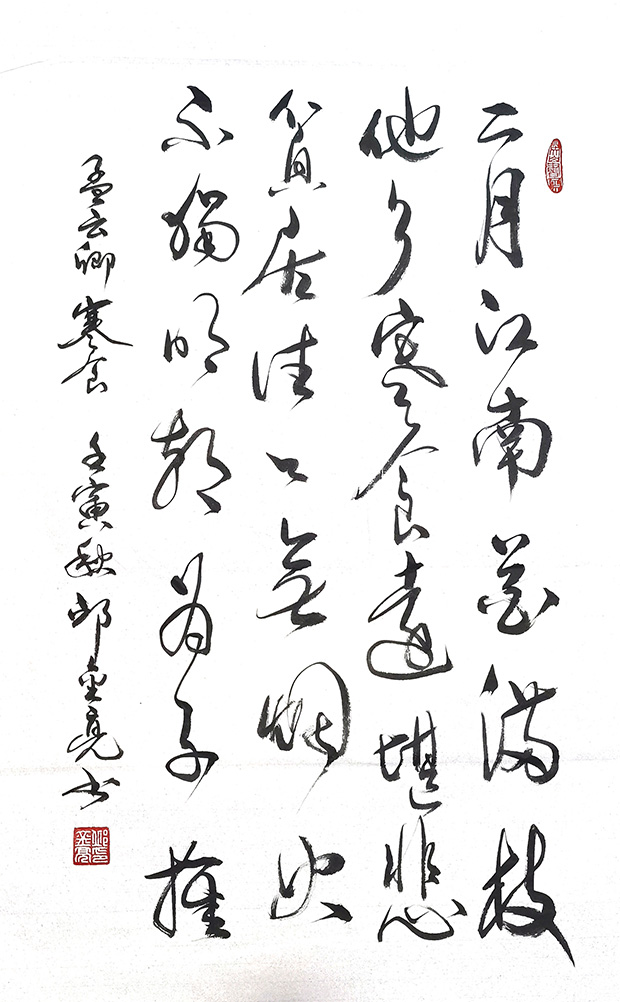 二月江南花满枝
他乡寒食遠堪悲
貧居往々無烟火
不獨明朝为子推
孟云卿寒食 壬寅秋邱金亮书